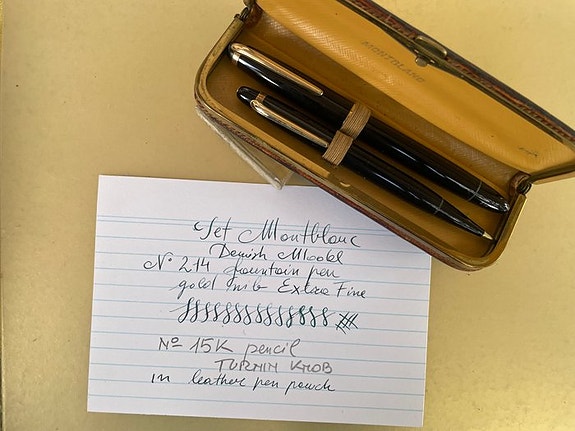 MONTBLANC
Set Montblanc
Danish Model
Nº 214 fountain pen
gold nib Extra Fine
Nº 15K pencil
TURNIN KNOB
in leather pen pouch